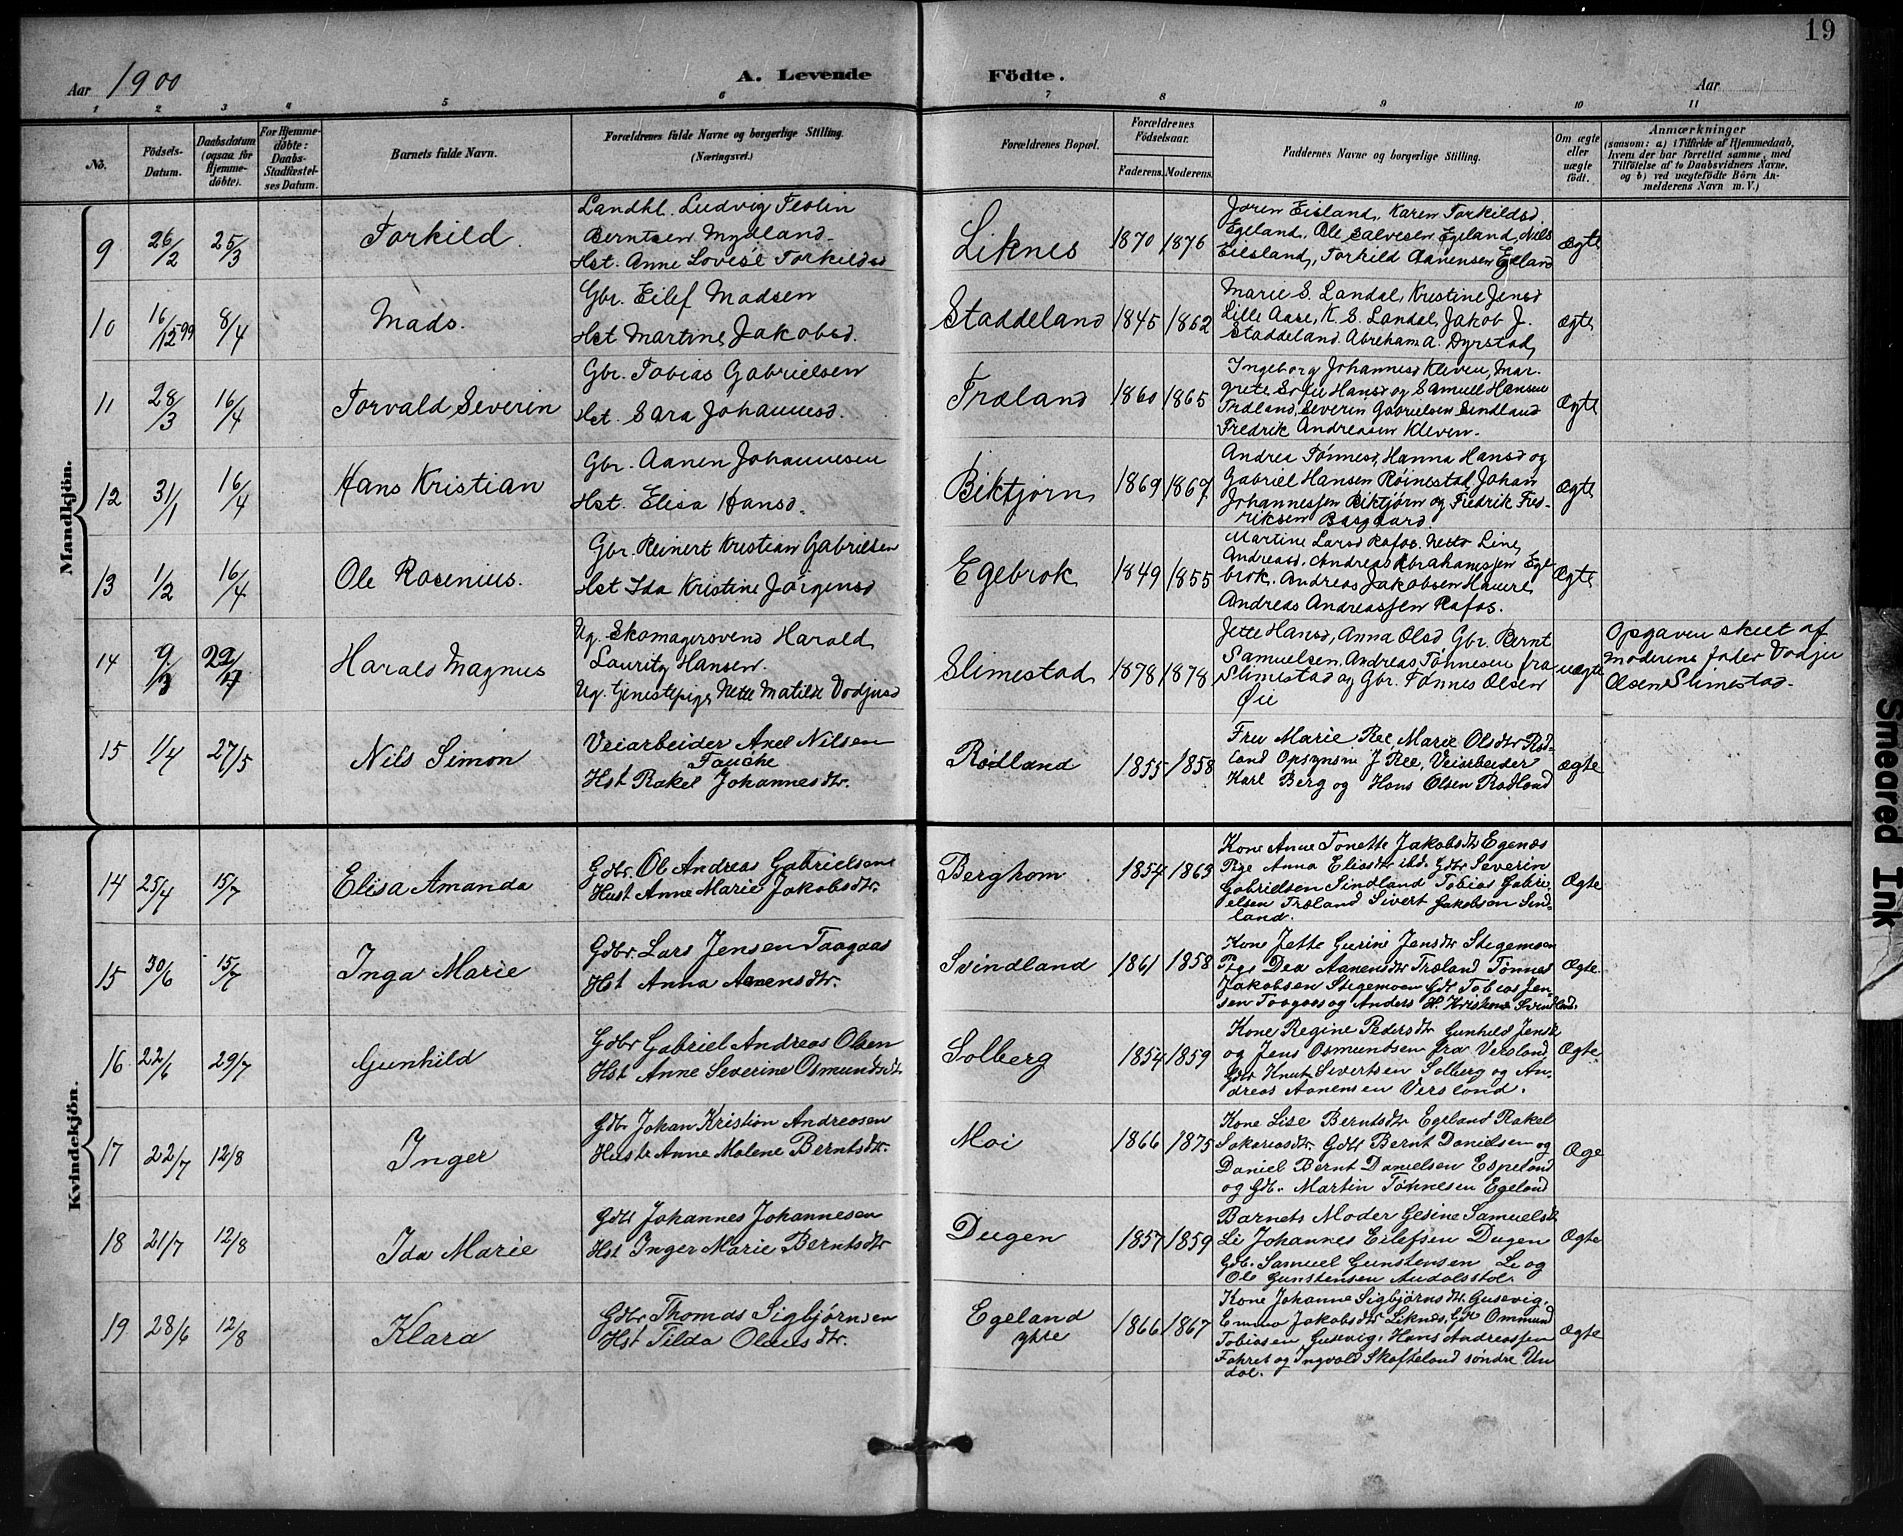 19
Aar 1900
A. Levende Födte.
Aar
1 2 3 4 5 6 7 8 9 10 11
No.
Födsels-Datum.
Daabsdatum (ogsaa for Hjemmedöbte).
For Hjemmedöbte: Daabs-Stadfæstelses Datum.
Barnets fulde Navn.
Forældrenes fulde Navne og borgerlige Stilling.
(Næringsvei.)
Forældrenes Bopæl.
Forældrenes Födselsaar.
Faderens. Moderens.
Faddernes Navne og borgerlige Stilling.
Om ægte eller uægte födt.
Anmærkninger
(saasom: a) i Tilfælde af Hjemmedaab, hvem der har forrettet samme, med Tilföielse af to Daabsvidners Navne, og b) ved uægtefödte Börn Anmelderens Navn m. V.)
Mandkjön.
9 26/2 25/3 Torkild.
Landhl. Ludvig Teolin
Berntsen Mydland
Hst. Anne Lovise Torkildsd
Liknes 1870 1876
Joren Eisland, Karen Torkildsd.
Egeland, Ole Salvesen Egeland, Nils
Eiesland, Torkild Aanensen Egeland
ægte
10 16/12 99 8/4 Mads.
Gbr. Eilef Madsen
Hst Martine Jakobsd.
Staddeland 1845 1862
Marie S. Landal, Kristine Jensd
Lille Aase, K. S. Landal, Jakob J.
Staddeland. Abreham A. Dyrstad,
ægte
11 28/3 16/4 Torvald Severin
Gbr. Tobias Gabrielsen
Hst. Sara Johannesd.
Træland 1860 1865
Ingeborg Johannesd Kleven, Mar-
grete Sofie Hansd og Samuel Hansen
Træland, Severin Gabrielsen Sindland
Fredrik Andreasen Kleven.
ægte
12 31/1 16/4 Hans Kristian
Gbr. Aanen Johannesen
Hst. Elisa Hansd.
Biktjørn 1869 1867
Andrea Tønnesd, Hanna Hansd og
Gabriel Hansen Røinestad, Johan
Johannessen Biktjørn og Fredrik Fred-
riksen Basgaard.
ægte
13 1/2 16/4 Ole Rosenius.
Gbr. Reinert Kristian Gabrielsen
Hst Ida Kristine Jørgensd
Egebrok 1849 1855
Martine Larsd Rafos. Netto Line
Andreasd. Andreas Abrahamssen Ege
brok. Andreas Jakobsen Hauere
Andreas Andreassen Rafos.
Ægte
14 9/3 22/4 Harald Magnus
Ug. Skomagersvend Harald
Lauritz Hansen.
Ug. tjenestepige Nette Matilde Vodjusd
Slimestad 1878 1878
Jette Hansd, Anna Olsd Gbr. Bernt
Samuelsen. Andreas Tønnesen fra
Slimestad og Gbr. Tønnes Olsen
Øie
uægte
Opgaven skeet af
moderens fader Vodju
Olsen Slimestad.
15 1/4 27/5 Nils Simon
Veiarbeider Axel Nilsen
Fauche
Hst Rakel Johannesdtr.
Rødland 1855 1858
Fru Marie Ree, Marie Olsdtr Rød-
land Opsynsm J Ree, Veiarbeider
Karl Berg og Hans Olsen Rødland
ægte
Kvindekjön.
14 25/4 15/7 Elisa Amanda
Gdbr. Ole Andreas Gabrielsen
Hust Anne Marie Jakobsdtr.
Berghom 1854 1863
Kone Anne Tonette Jakobsdtr Egenæs
Pige Anna Eliasdtr ibd. Gdbr Severin
Gabrielsen Sindland Tobias Gabri-
elsen Træland Sivert Jakobsen Sind-
land.
Ægte
15 30/6 15/7 Inga Marie
Gdbr Lars Jensen Taagaas
Hst Anna Aanensdtr.
Svindland 1861 1858
Kone Jette Gurine Jensdtr Stegemoen
Pige Dea Aanensdtr Træland Tønnes
Jakobsen Stegemoen Gdb Tobias Jen-
sen Taagaas og Anders H. Kristens Svindland.
Ægte.
16 22/6 29/7 Gunhild
Gdbr Gabriel Andreas Olsen
Hst Anne Severine Osmundsdtr
Solberg 1854 1859
Kone Regine Pedersdtr Gunhild Jensd
og Jens Osmundsen fra Versland,
Gdbr Knut Sivertsen Solberg og An-
dreas Aanensen Versland.
Ægte.
17 22/7 12/8 Inger
Gdbr Johan Kristian Andreasen
Hustr Anne Malene Berntsdtr.
Moi 1866 1875
Kone Lise Berntsdtr Egeland Rakel
Sakariasdtr. Gdb Bernt Danielsen og
Daniel Bernt Danielsen Espeland
og Gdb. Martin Tønnesen Egeland
Æge
18 21/7 12/8 Ida Marie
Gdb Johannes Johannesen
Hst Inger Marie Berntsdtr
Dugen 1857 1859
Barnets Moder Gesine Samuelsd
Li Johannes Eilefsen Dugen
Gdb. Samuel Gunstensen Li og
Ole Gunstensen Audalsstøl.
Ægte
19 28/6 12/8 Klara
Gdbr Thomas Sigbjørnsen
Hst Tilda Olausdtr.
Egeland
ytre
1866 1867
Kone Johanne Sigbjørnsdtr Gusevig.
Emma Jakobsdtr Liknes, Gdb Ommund
Tobiasen Gusevig. Hans Andreassen
Fahret og Ingvald Skofteland søndre Un
dal.
Ægte
Smeared Ink